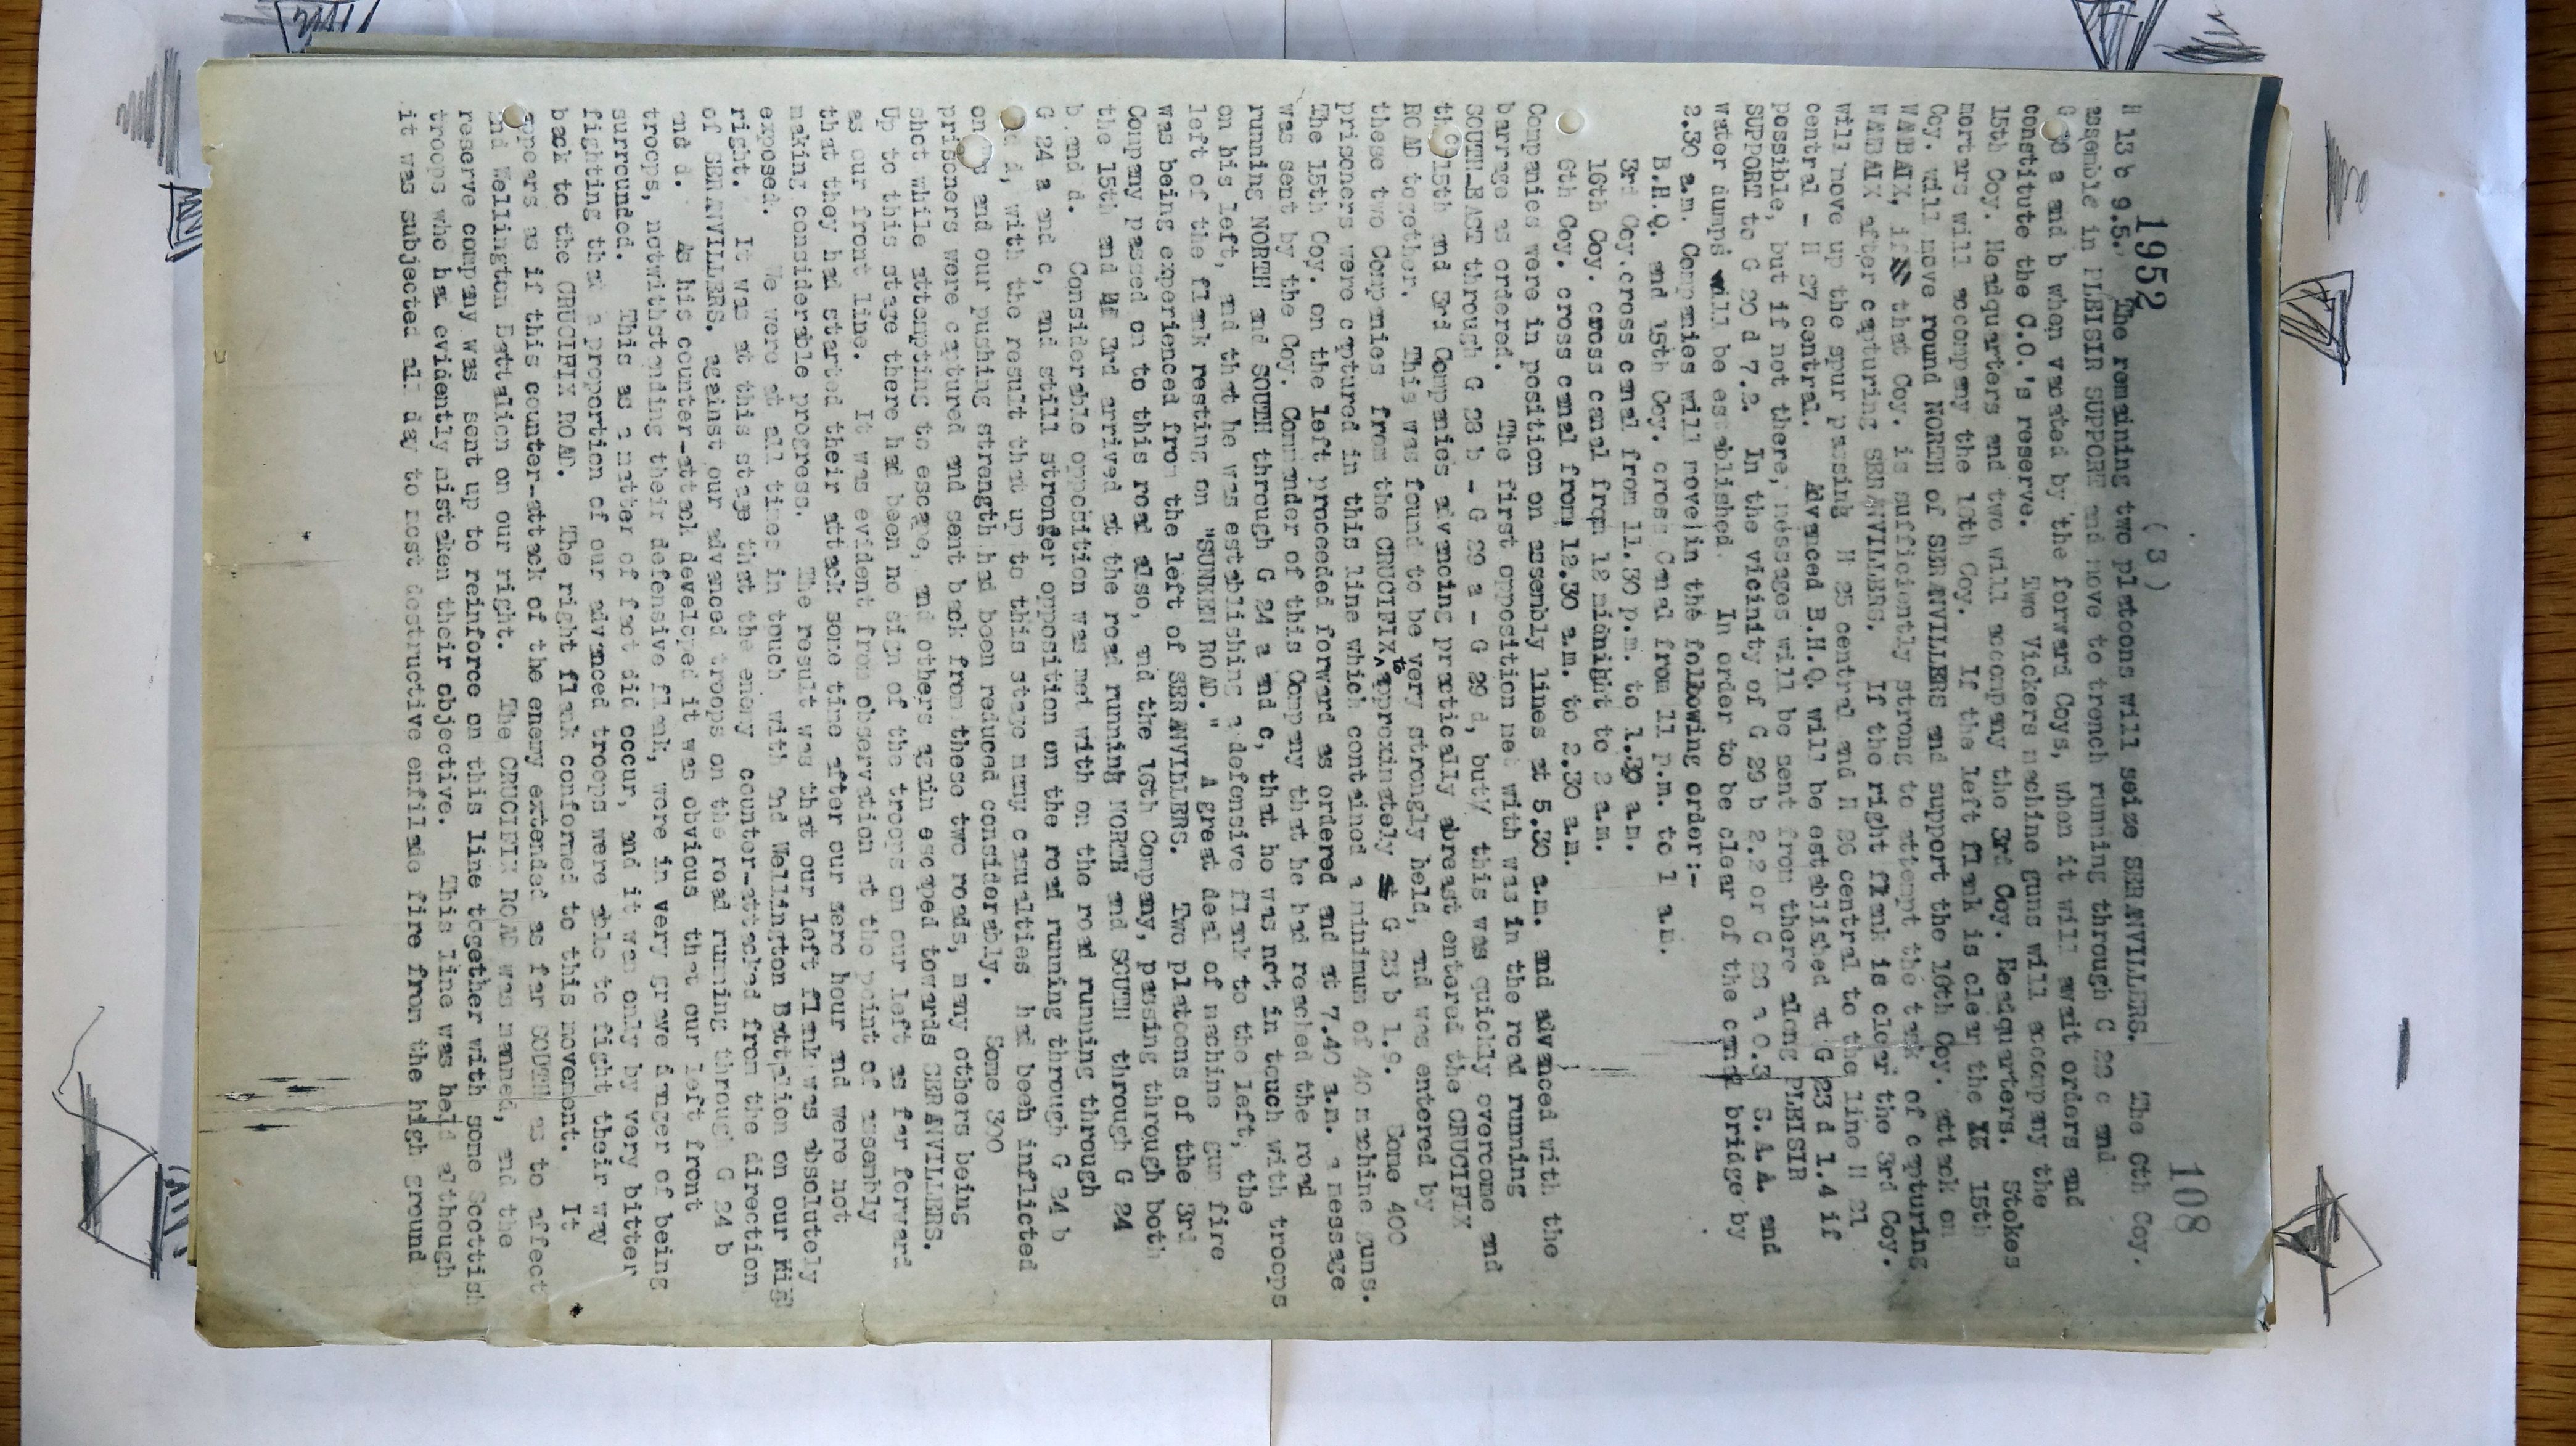 108
1952
( 3 )
H 13 b 9.5. The remaining two platoons will seize SERANVILLERS. The 6th Coy.
assemble in PLEISIR SUPPORT and move to trench running through G 22 c and
G 28 a and b when vacated by the forward Coys, when it will await orders and
constitute the C.O.'s reserve. Two Vickers machine guns will accompany the
15th Coy. Headquarters and two will accompany the 3rd Coy. Headquarters. Stokes
mortars will accompany the 16th Coy. If the left flank is clear the 15th
Coy. will move round NORTH of SERANVILLERS and support the 16th Coy. attack on
WABAIX, if that Coy. is sufficiently strong to attempt the task of capturing
WABAIX after capturing SERANVILLERS. If the right flank is clear the 3rd Coy.
will move up the spur passing H 25 central and H 26 central to the line H 21
central - H 27 central. Advanced B.H.Q. will be established at G 23 d 1.4 if
possible, but if not there, messages will be sent from there along PLEISIR
SUPPORT to G 20 d 7.2. In the vicinity of G 29 b 2.2 or G 28 a 0.3 S.A.A. and
water dumps will be established. In order to be clear of the canal bridge by
2.30 a.m. Companies will move in the following order:-
B.H.Q. and 15th Coy. cross Canal from 11 p.m. to 1 a.m.
3rd Coy. cross canal from 11.30 p.m. to 1.30 a.m.
16th Coy. cross canal from 12 midnight to 2 a.m.
6th Coy. cross canal from 12.30 a.m. to 2.30 a.m.
Companies were in position on assembly lines at 5.30 a.m. and advanced with the
barrage as ordered. The first opposition met with was in the road running
SOUTH-EAST through G 23 b - G 29 a - G 29 d, but/ this was quickly overcome and
the 15th and 3rd Companies advancing practically abreast entered the CRUCIFIX
ROAD together. This was found to be very strongly held, and was entered by
these two Companies from the CRUCIFIX to approximately G 23 b 1.9. Some 400
prisoners were captured in this line which contained a minimum of 40 machine guns.
The 15th Coy. on the left proceeded forward as ordered and at 7.40 a.m. a message
was sent by the Coy. Commander of this Company that he had reached the road
running NORTH and SOUTH through G 24 a and c, that he was not in touch with troops
on his left, and that he was establishing a defensive flank to the left, the
left of the flank resting on "SUNKEN ROAD." A great deal of machine gun fire
was being experienced from the left of SERANVILLERS. Two platoons of the 3rd
Company passed on to this road also, and the 16th Company, passing through both
the 15th and 3rd arrived at the road running NORTH and SOUTH through G 24
b and d. Considerable opposition was met with on the road running through
G 24 a and c, and still stronger opposition on the road running through G 24 b
and d, with the result that up to this stage many casualties had been inflicted
on and our pushing strength had been reduced considerably. Some 300
prisoners were captured and sent back from these two roads, many others being
shot while attempting to escape, and others again escaped towards SERANVILLERS.
Up to this stage there had been no sign of the troops on our left as far forward
as our front line. It was evident from observation at the point of assembly
that they had started their attack some time after our zero hour and were not
making considerable progress. The result was that our left flank was absolutely
exposed. We were at all times in touch with 2nd Wellington Battalion on our
right. It was at this stage that the enemy counter-attacked from the direction
of SERANVILLERS. against our advanced troops on the road running through G 24 b
and d. As his counter-attack developed it was obvious that our left front
troops, notwithstanding their defensive flank, were in very grave danger of being
surrounded. This as a matter of fact did occur, and it was only by very bitter
fighting that a proportion of our advanced troops were able to fight their way
back to the CRUCIFIX ROAD. The right flank conformed to this movement. It
appears as if this counter-attack of the enemy extended as far SOUTH as to affect
2nd Wellington Battalion on our right. The CRUCIFIX ROAD was manned, and the
reserve company was sent up to reinforce on this line together with some Scottish
troops who had evidently mistaken their objective. This line was held although
it was subjected all day to most destructive enfilade fire from the high ground